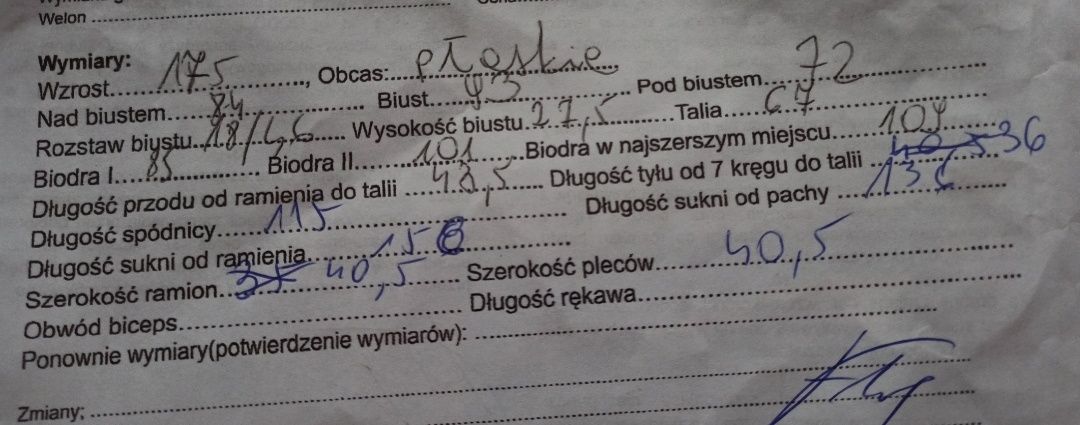 Welon
Wymiary:
Wzrost 175, Obcas: płaskie
Nad biustem 84 Biust 93 Pod biustem 72
Rozstaw biustu 18/ Wysokość biustu 27,5 Talia 67
Biodra I 85 Biodra II 101 Biodra w najszerszym miejscu 109
Długość przodu od ramienia do talii 43,5 Długość tyłu od 7 kręgu do talii 36
Długość spódnicy 115 Długość sukni od pachy 136
Długość sukni od ramienia 156
Szerokość ramion 40,5 Szerokość pleców 40,5
Obwód biceps Długość rękawa
Ponownie wymiary(potwierdzenie wymiarów):
Zmiany: